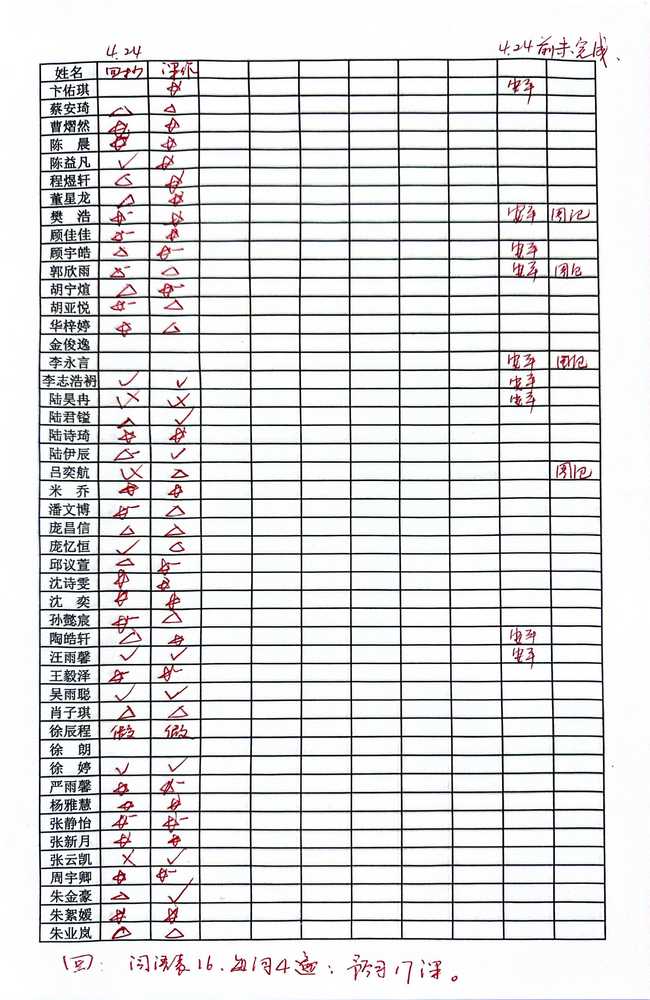 4.24 4.24前未完成、
姓名 回抄 课作
卞佑琪 ☆ 安平
蔡安琦 △ △
曹熠然 ☆ ☆
陈 晨 ☆ ☆
陈益凡 ✓ ☆
程煜轩 △ ☆
董星龙 △ ☆
樊 浩 ☆- ☆ 安平 周记
顾佳佳 ☆- ☆
顾宇皓 △ ☆- 安平
郭欣雨 ☆- △ 安平 周记
胡宁煊 △ ☆-
胡亚悦 ☆- △
华梓婷 ☆ △
金俊逸
李永言 安平 周记
李志浩祤 ✓ ✓ 安平
陆昊冉 安平
陆君镒 △ ✓
陆诗琦 ☆ ☆
陆伊辰 △- ✓
吕奕航 △ 周记
米 乔 ☆ ☆
潘文博 ☆- △
庞昌信 △ △
庞忆恒 ✓ △
邱议萱 △ ☆-
沈诗雯 ☆ ☆
沈 奕 ☆ ☆
孙懿宸 ☆- △
陶皓轩 △ ☆ 安平
汪雨馨 ✓ ✓ 安平
王毅泽 ☆- ☆-
吴雨聪 ✓ ✓
肖子琪 △ △
徐辰程 假 假
徐 朗
徐 婷 ✓ ✓
严雨馨 ☆ ☆-
杨雅慧 ☆ ☆
张静怡 ☆- ☆-
张新月 ☆ ☆
张云凯 × ✓
周宇卿 ☆ ☆-
朱金豪 △ ✓
朱絮媛 ☆ ☆
朱业岚 △ △
回: 16. 每词4遍; 预习17课。